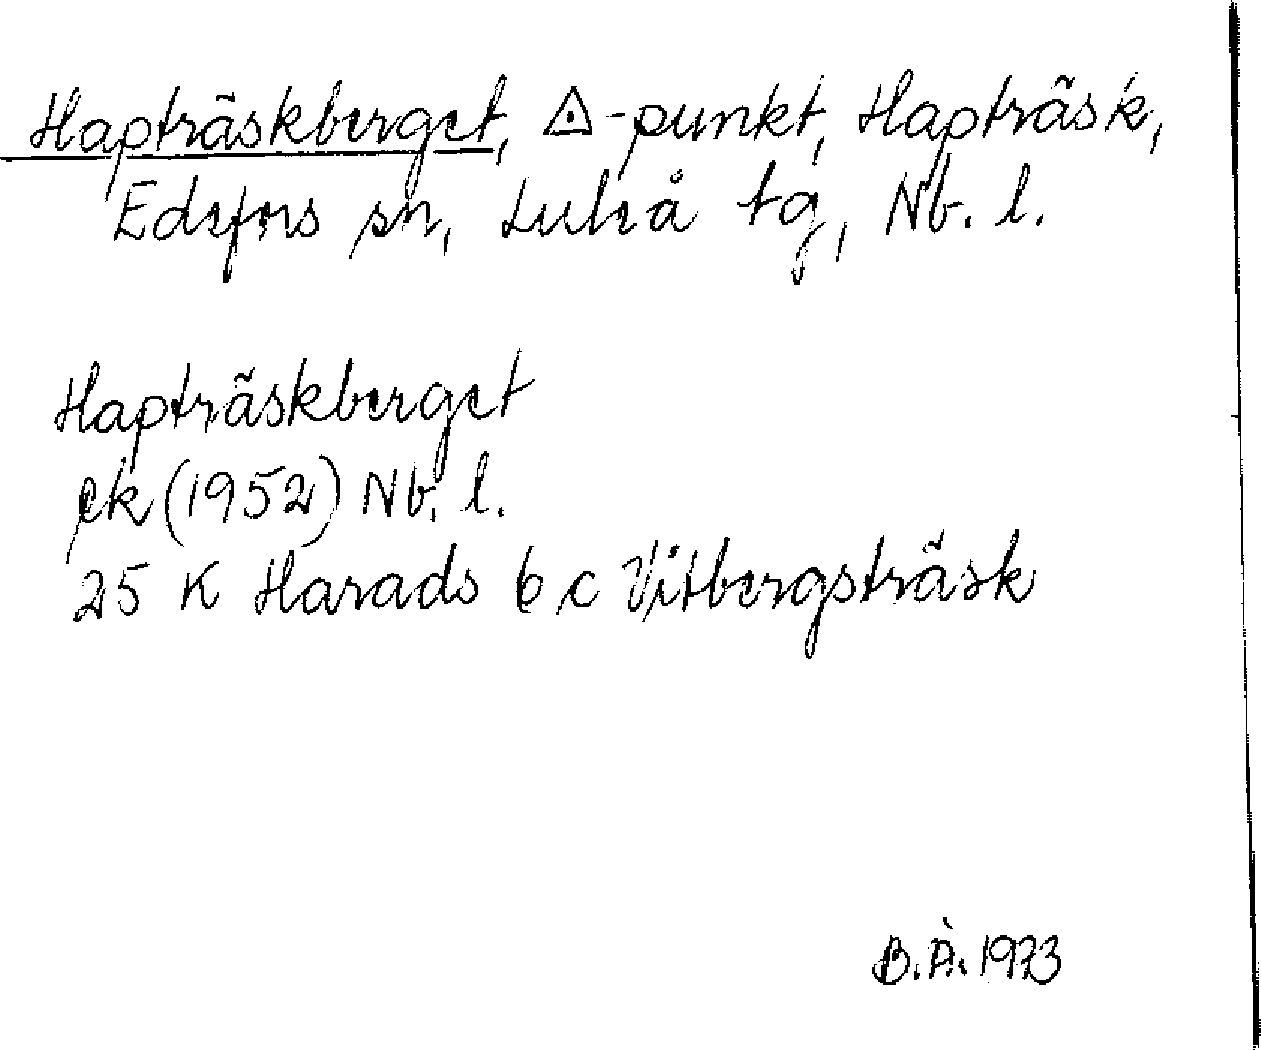 Hapträskberget, ◬-punkt, Hapträsk,
Edefors sn, Luleå tg, Nb. l.
Hapträskberget
ek (1952) Nb. l.
25 K Harads 6 c Vitbergsträsk
B. Å. 1973